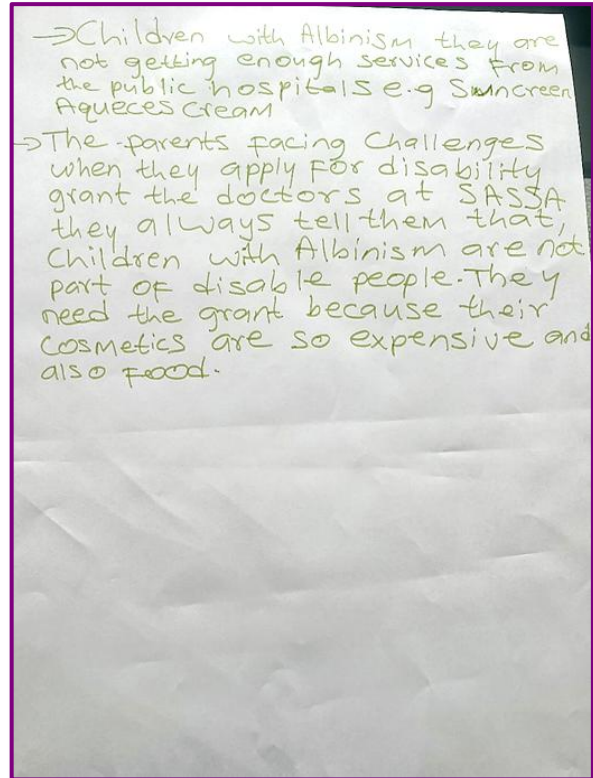 →Children with Albinism they are
not getting enough services from
the public hospitals e.g Suncreen
Aqueces Cream
→The parents facing Challenges
when they apply for disability
grant the doctors at SASSA
they always tell them that,
Children with Albinism are not
part of disable people. They
need the grant because their
Cosmetics are so expensive and
also food.